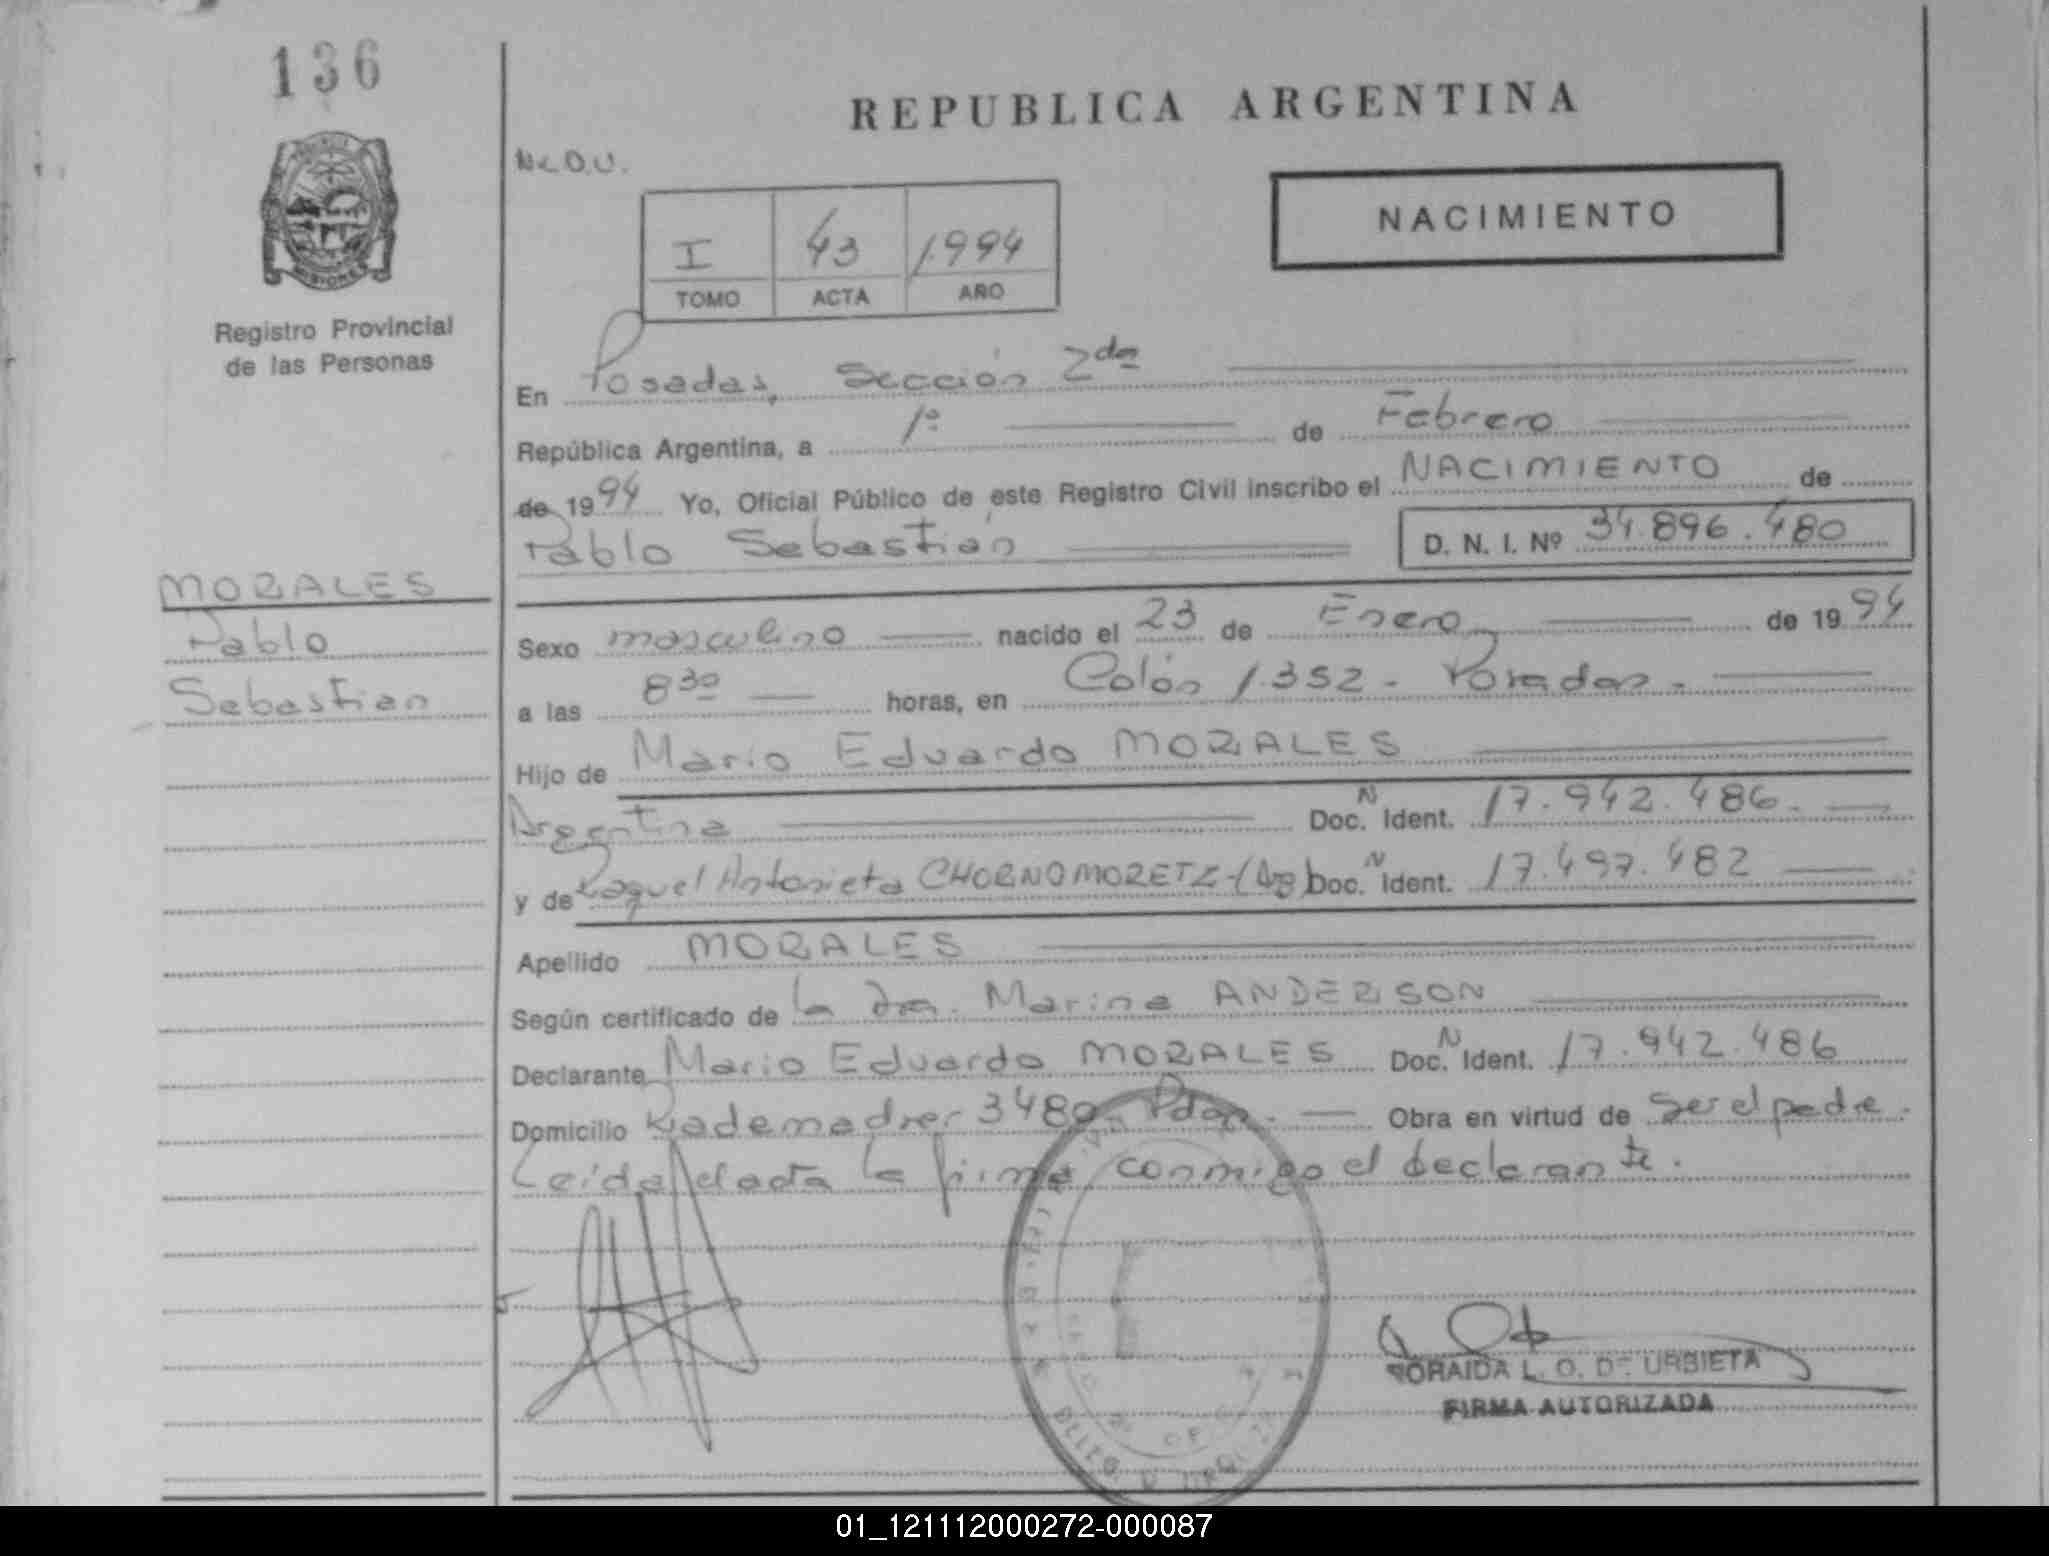 136
REPUBLICA ARGENTINA
NACIMIENTO
I 43 1.994
TOMO ACTA AÑO
MISIONES
Registro Provincial
de las Personas
En Posadas, Sección 2da
República Argentina, a 1º de Febrero
de 1994 Yo, Oficial Público de este Registro Civil inscribo el NACIMIENTO de
Pablo Sebastián D. N. I. Nº 34.896.480
MORALES
Pablo
Sebastian
Sexo masculino nacido el 23 de Enero de 1994
a las 8 30 horas, en Colón 1.352 - Posadas.
Hijo de Mario Eduardo MORALES
Argentina Doc. N Ident. 17.942.486.
y de Raquel Antonieta CHORNOMORETZ - (Arg) Doc. N Ident. 17.497.482
Apellido MORALES
Según certificado de la Dra. Marina ANDERSON
Declarante Mario Eduardo MORALES Doc. N Ident. 17.942.486
Domicilio 3480 Pdas. Obra en virtud de Ser el padre.
Leída el acta la firma conmigo el declarante.
L. O. DE URBIETA
FIRMA AUTORIZADA
01_121112000272-000087